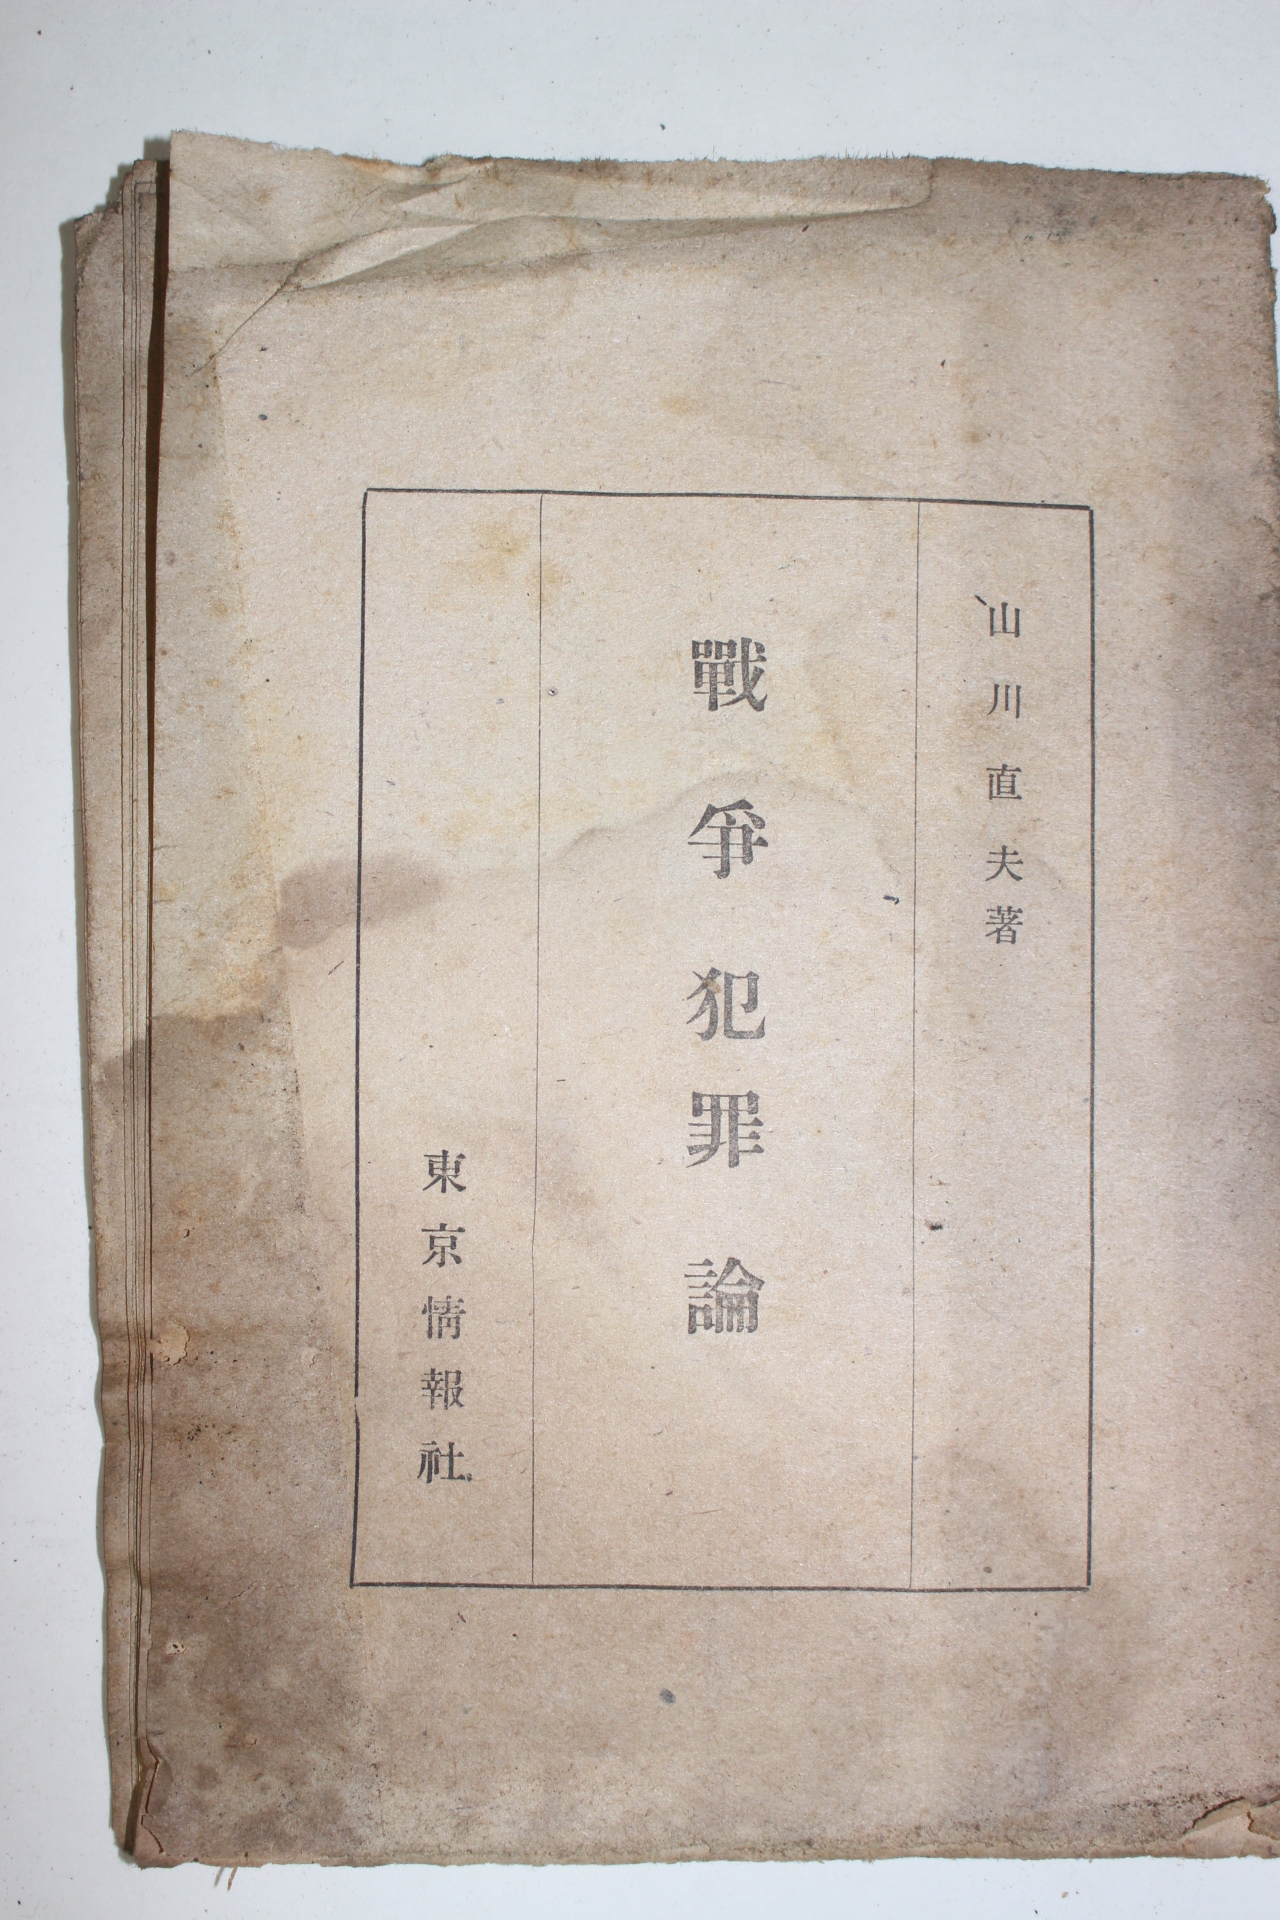 山川直夫著
戰爭犯罪論
東京情報社